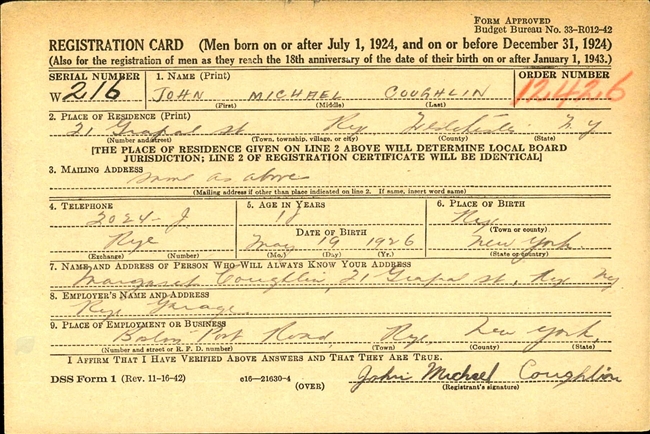 FORM APPROVED
Budget Bureau No. 33-R012-42
REGISTRATION CARD (Men born on or after July 1, 1924, and on or before December 31, 1924)
(Also for the registration of men as they reach the 18th anniversary of the date of their birth on or after January 1, 1943.)
SERIAL NUMBER 1. NAME (Print) ORDER NUMBER
W 216 JOHN MICHAEL COUGHLIN 12426
(First) (Middle) (Last)
2. PLACE OF RESIDENCE (Print)
21 Grapal st Rye N Y
(Number and street) (Town, township, village, or city) (County) (State)
[THE PLACE OF RESIDENCE GIVEN ON LINE 2 ABOVE WILL DETERMINE LOCAL BOARD
JURISDICTION; LINE 2 OF REGISTRATION CERTIFICATE WILL BE IDENTICAL]
3. MAILING ADDRESS
same as above
(Mailing address if other than place indicated on line 2. If same, insert word same)
4. TELEPHONE 5. AGE IN YEARS 6. PLACE OF BIRTH
2024-J 18 Rye
(Town or county)
DATE OF BIRTH
Rye May 19 1926 New York
(Exchange) (Number) (Mo.) (Day) (Yr.) (State or country)
7. NAME AND ADDRESS OF PERSON WHO WILL ALWAYS KNOW YOUR ADDRESS
Margaret Coughlin, 21 Grapal st, Rye Ny
8. EMPLOYER'S NAME AND ADDRESS
Rye Garage
9. PLACE OF EMPLOYMENT OR BUSINESS
Boston Post Road, Rye, New York,
(Number and street or R. F. D. number) (Town) (County) (State)
I AFFIRM THAT I HAVE VERIFIED ABOVE ANSWERS AND THAT THEY ARE TRUE.
DSS Form 1 (Rev. 11-16-42) c16-21630-4 John Michael Coughlin
(OVER) (Registrant's signature)